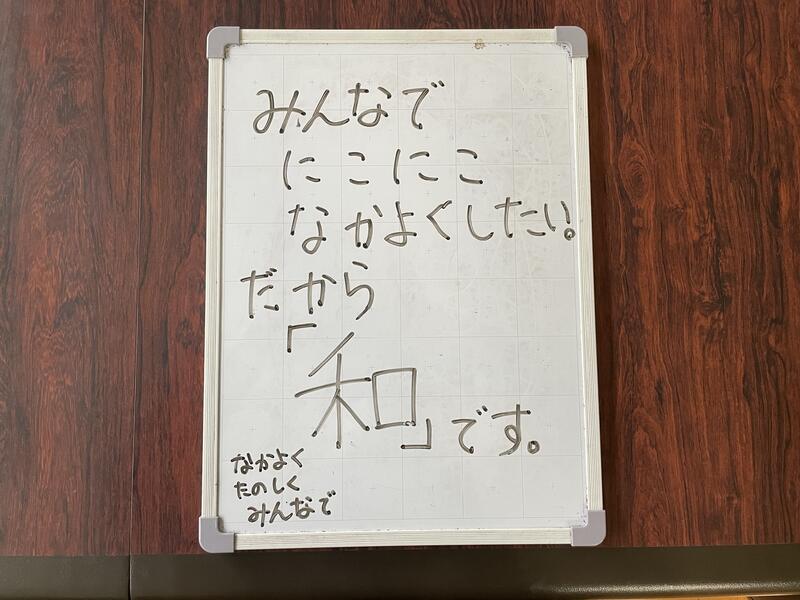 みんなで
にこにこ
なかよくしたい。
だから
「和」です。
なかよく
たのしく
みんなで